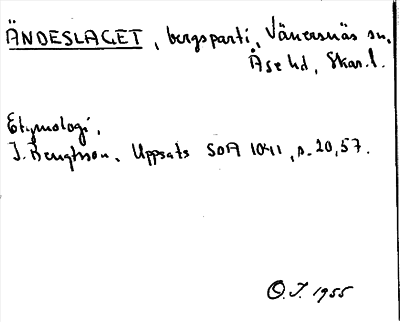 ÄNDESLAGET, bergsparti, Vänersnäs sn,
Åse hd, Skar.l.
Etymologi,
J. Bengtsson. Uppsats SOA 1041, s. 20, 57.
O.J. 1955